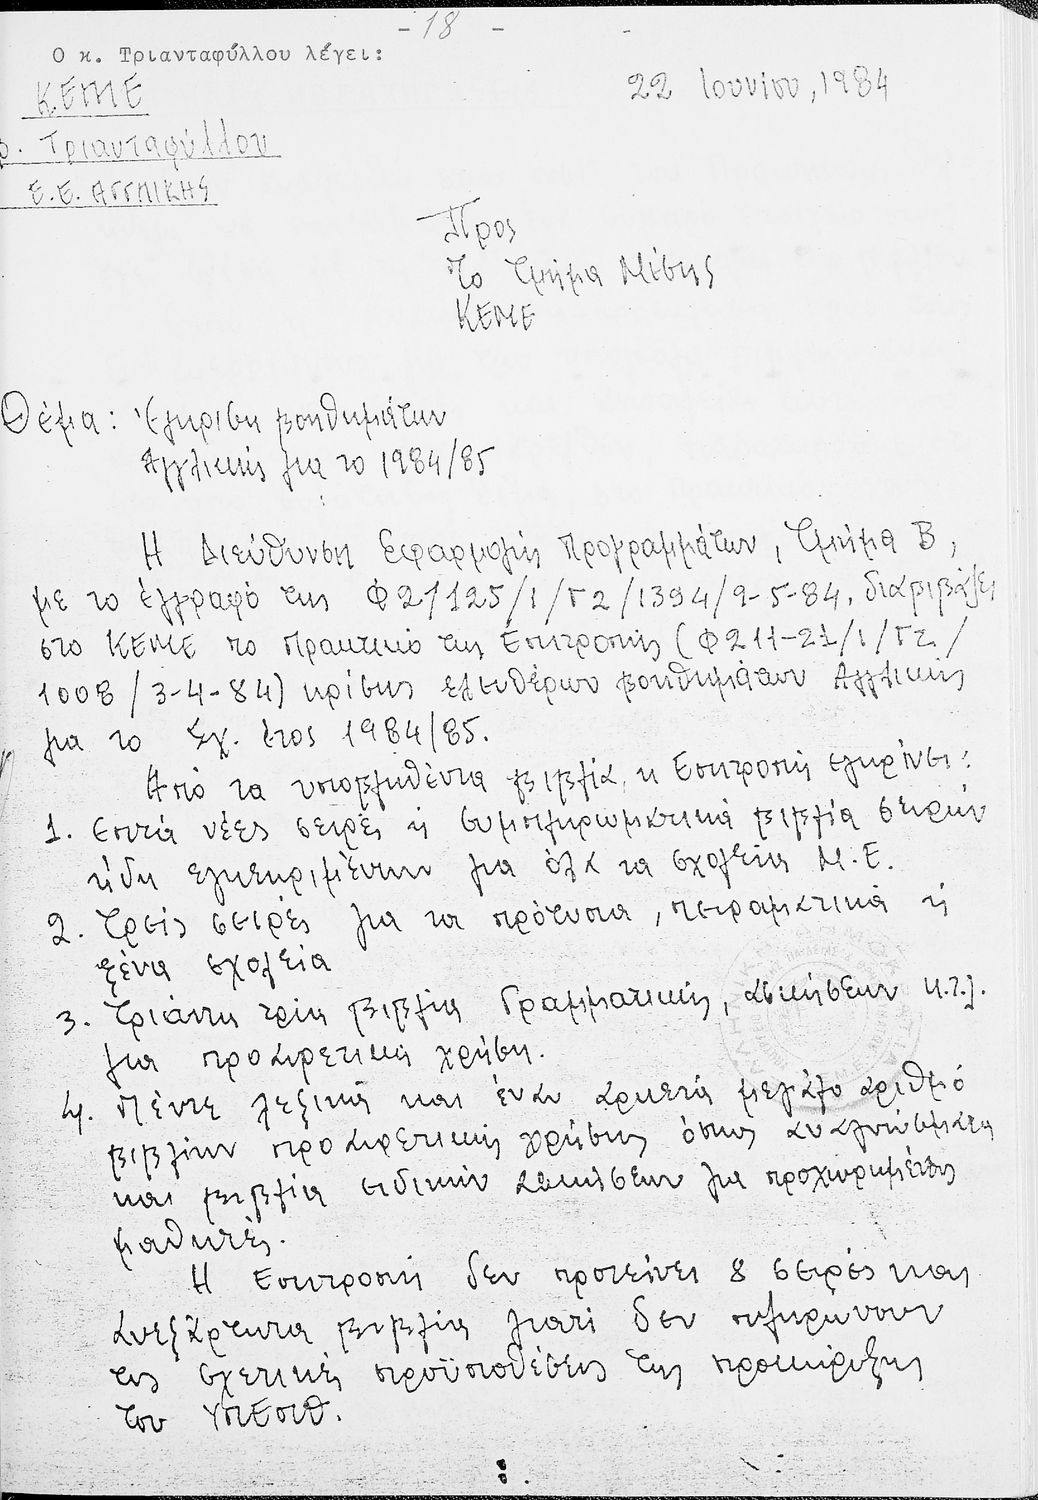 - 18 -
Ο κ. Τριανταφύλλου λέγει:
22 Ιουνίου, 1984
ΚΕΜΕ
Φ. Τριανταφύλλου
Ε.Ε. ΑΓΓΛΙΚΗΣ
Προς
το Τμήμα Μέσης
ΚΕΜΕ
Θέμα: Έγκριση βοηθημάτων
Αγγλικής για το 1984/85
Η Διεύθυνση Εφαρμογής Προγραμμάτων, Τμήμα Β,
με το έγγραφό της Φ21125/1/Γ2/1394/9-5-84, διαβιβάζει
στο ΚΕΜΕ το Πρακτικό της Επιτροπής (Φ211-21/1/Γ2./
1008/3-4-84) κρίσης ελευθέρων βοηθημάτων Αγγλικής
για το Σχ. έτος 1984/85.
Από τα υποβληθέντα βιβλία, η Επιτροπή εγκρίνει:
1. Επτά νέες σειρές ή συμπληρωματικά βιβλία σειρών
ήδη εγκεκριμένων για όλα τα σχολεία Μ.Ε.
2. Τρείς σειρές για τα πρότυπα, πειραματικά ή
ξένα σχολεία
3. Τριάντα τρία βιβλία Γραμματικής, ασκήσεων κ.τ.λ.
για προαιρετική χρήση.
4. Πέντε λεξικά και έναν αρκετά μεγάλο αριθμό
βιβλίων προαιρετικής χρήσης όπως αναγνώσματα
και βιβλία ειδικών ασκήσεων για προχωρημένους
μαθητές.
Η Επιτροπή δεν προτείνει 8 σειρές και
ανεξάρτητα βιβλία γιατί δεν πληρώνουν
τις σχετικές προϋποθέσεις της προκήρυξης
του ΥπΕπΘ.